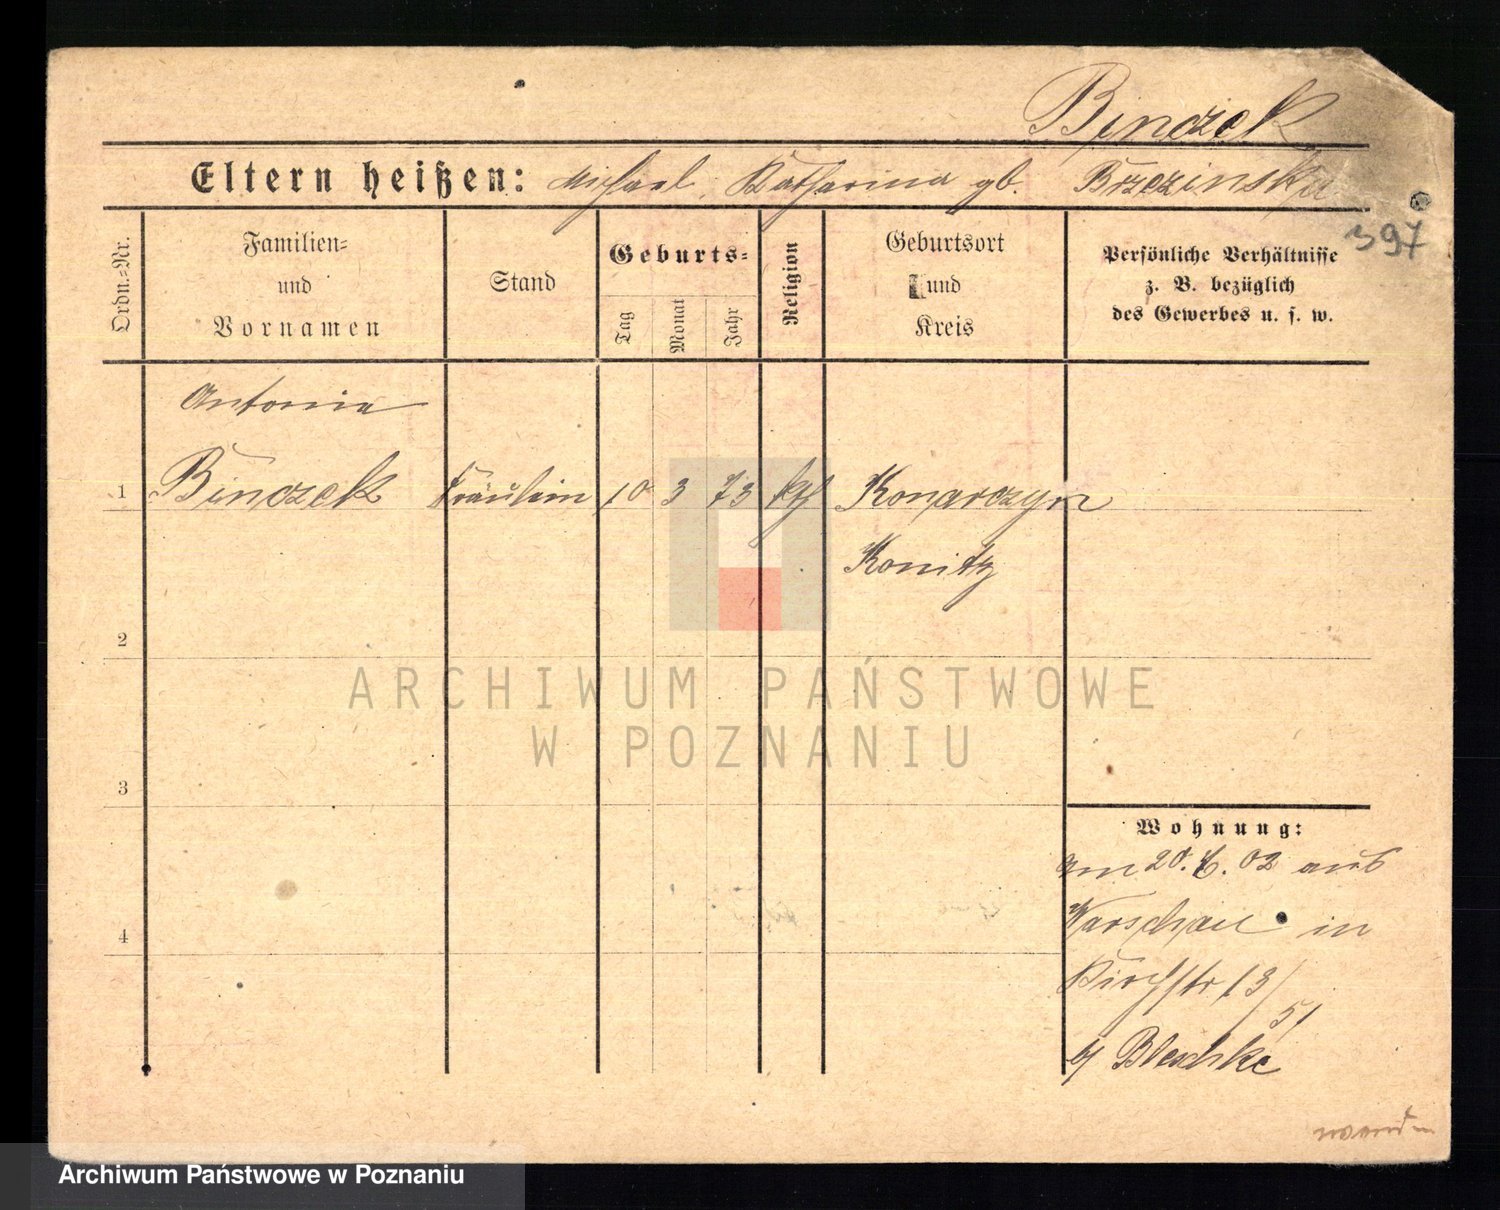 Binczek
Eltern heißen: Michael Katharina gb. Brzezinska
397
Ordn.-Nr.
Familien-
und
Vornamen
Stand
Geburts-
Tag
Monat
Jahr
Religion
Geburtsort
und
Kreis
Persönliche Verhältnisse
z. B. bezüglich
des Gewerbes u. s. w.
Antonie
1 Binczek Fräulein 10 3 73 kth Konarczyn
Konitz
2
ARCHIWUM PAŃSTWOWE
W POZNANIU
3
Wohnung:
am 20. 6. 02 aus
4
Warschau in
Kirchstr 13/
51
b/ Bleschke
Archiwum Państwowe w Poznaniu